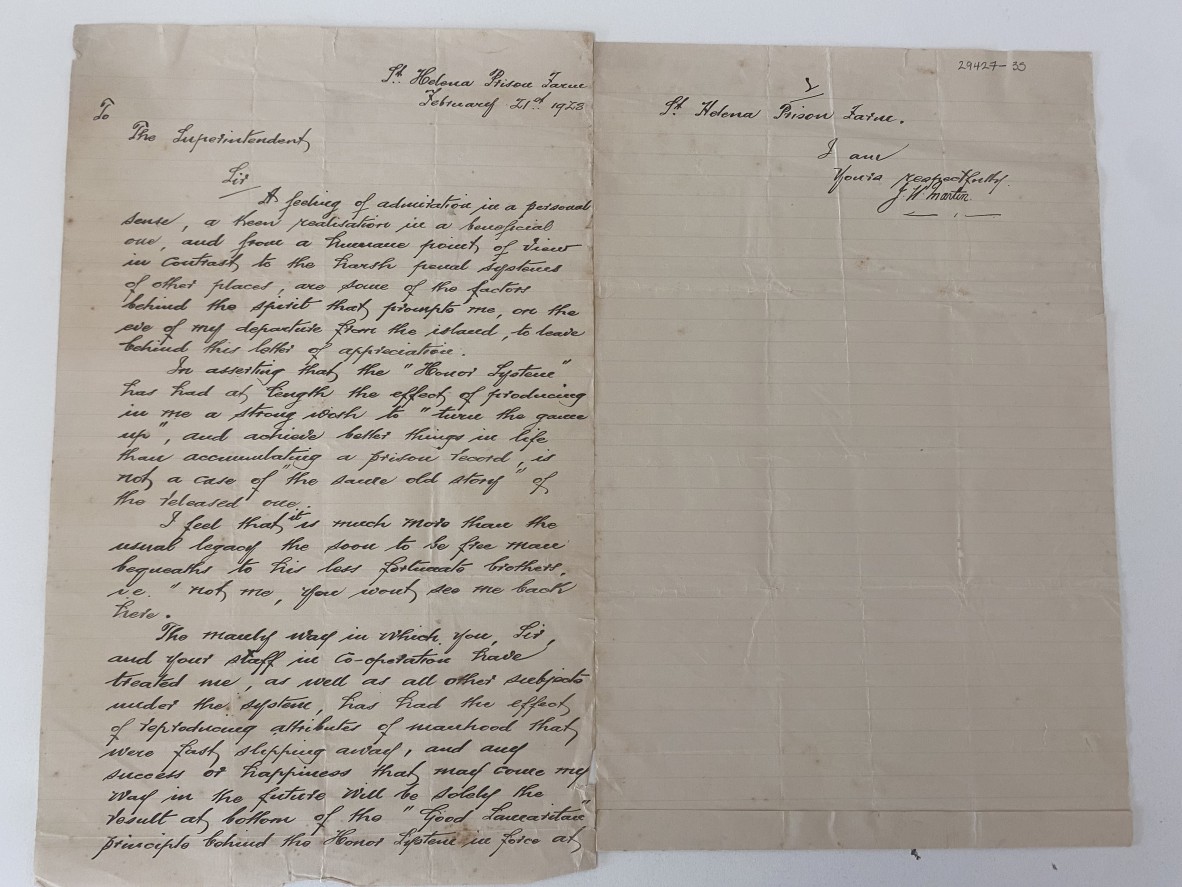 St. Helena Prison Farm
February 21st 1923
To
The Superintendent
Sir
A feeling of admiration in a personal
sense, a keen realisation in a beneficial
one, and from a humane point of view
in contrast to the harsh penal systems
of other places, are some of the factors
behind the spirit that prompts me, on the
eve of my departure from the island, to leave
behind this letter of appreciation.
In asserting that the "Honor System"
has had at length the effect of producing
in me a strong wish to "turn the game
up", and achieve better things in life
than accumulating a prison record, is
not a case of "the same old story" of
the released one.
I feel that it is much more than the
usual legacy the soon to be free man
bequeaths to his less fortunate brothers,
i.e. "not me, you wont see me back
here.
The manly way in which you, Sir,
and your staff in co-operation have
treated me, as well as all other subjects
under the system, has had the effect
of reproducing attributes of manhood that
were fast slipping away, and any
success or happiness that may come my
way in the future will be solely the
result at bottom of the "Good Samaritan"
principle behind the Honor System in force at
29427-35
St. Helena Prison Farm.
I am
Yours respectfully.
J W Martin